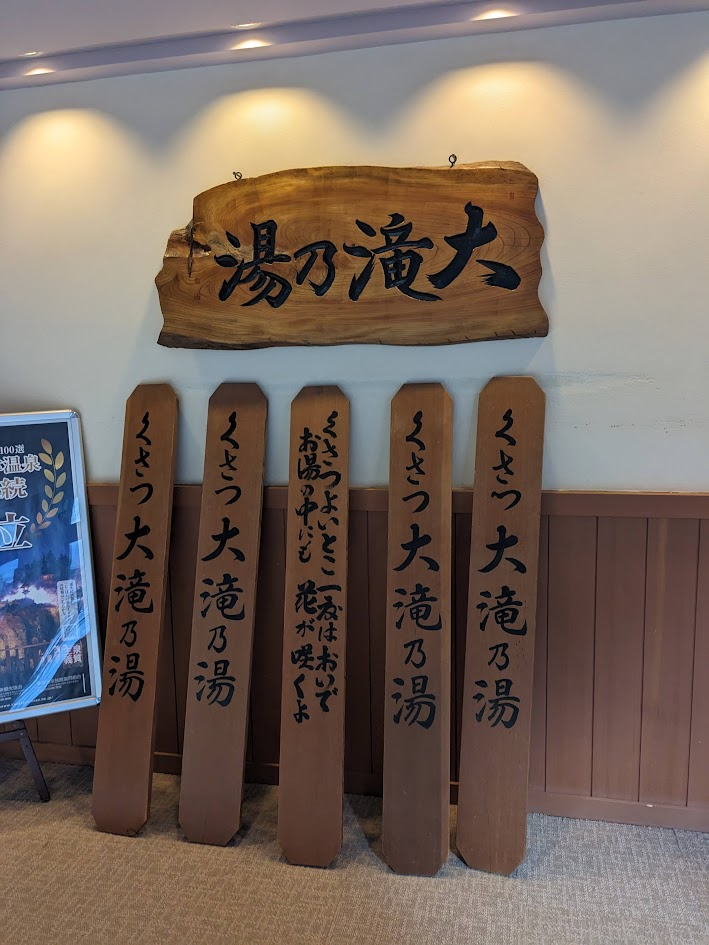 大滝乃湯
くさつ大滝乃湯
くさつ大滝乃湯
くさつよいとこ一度はおいで
お湯の中にも花が咲くよ
くさつ大滝乃湯
くさつ大滝乃湯
100選
温泉
続
位